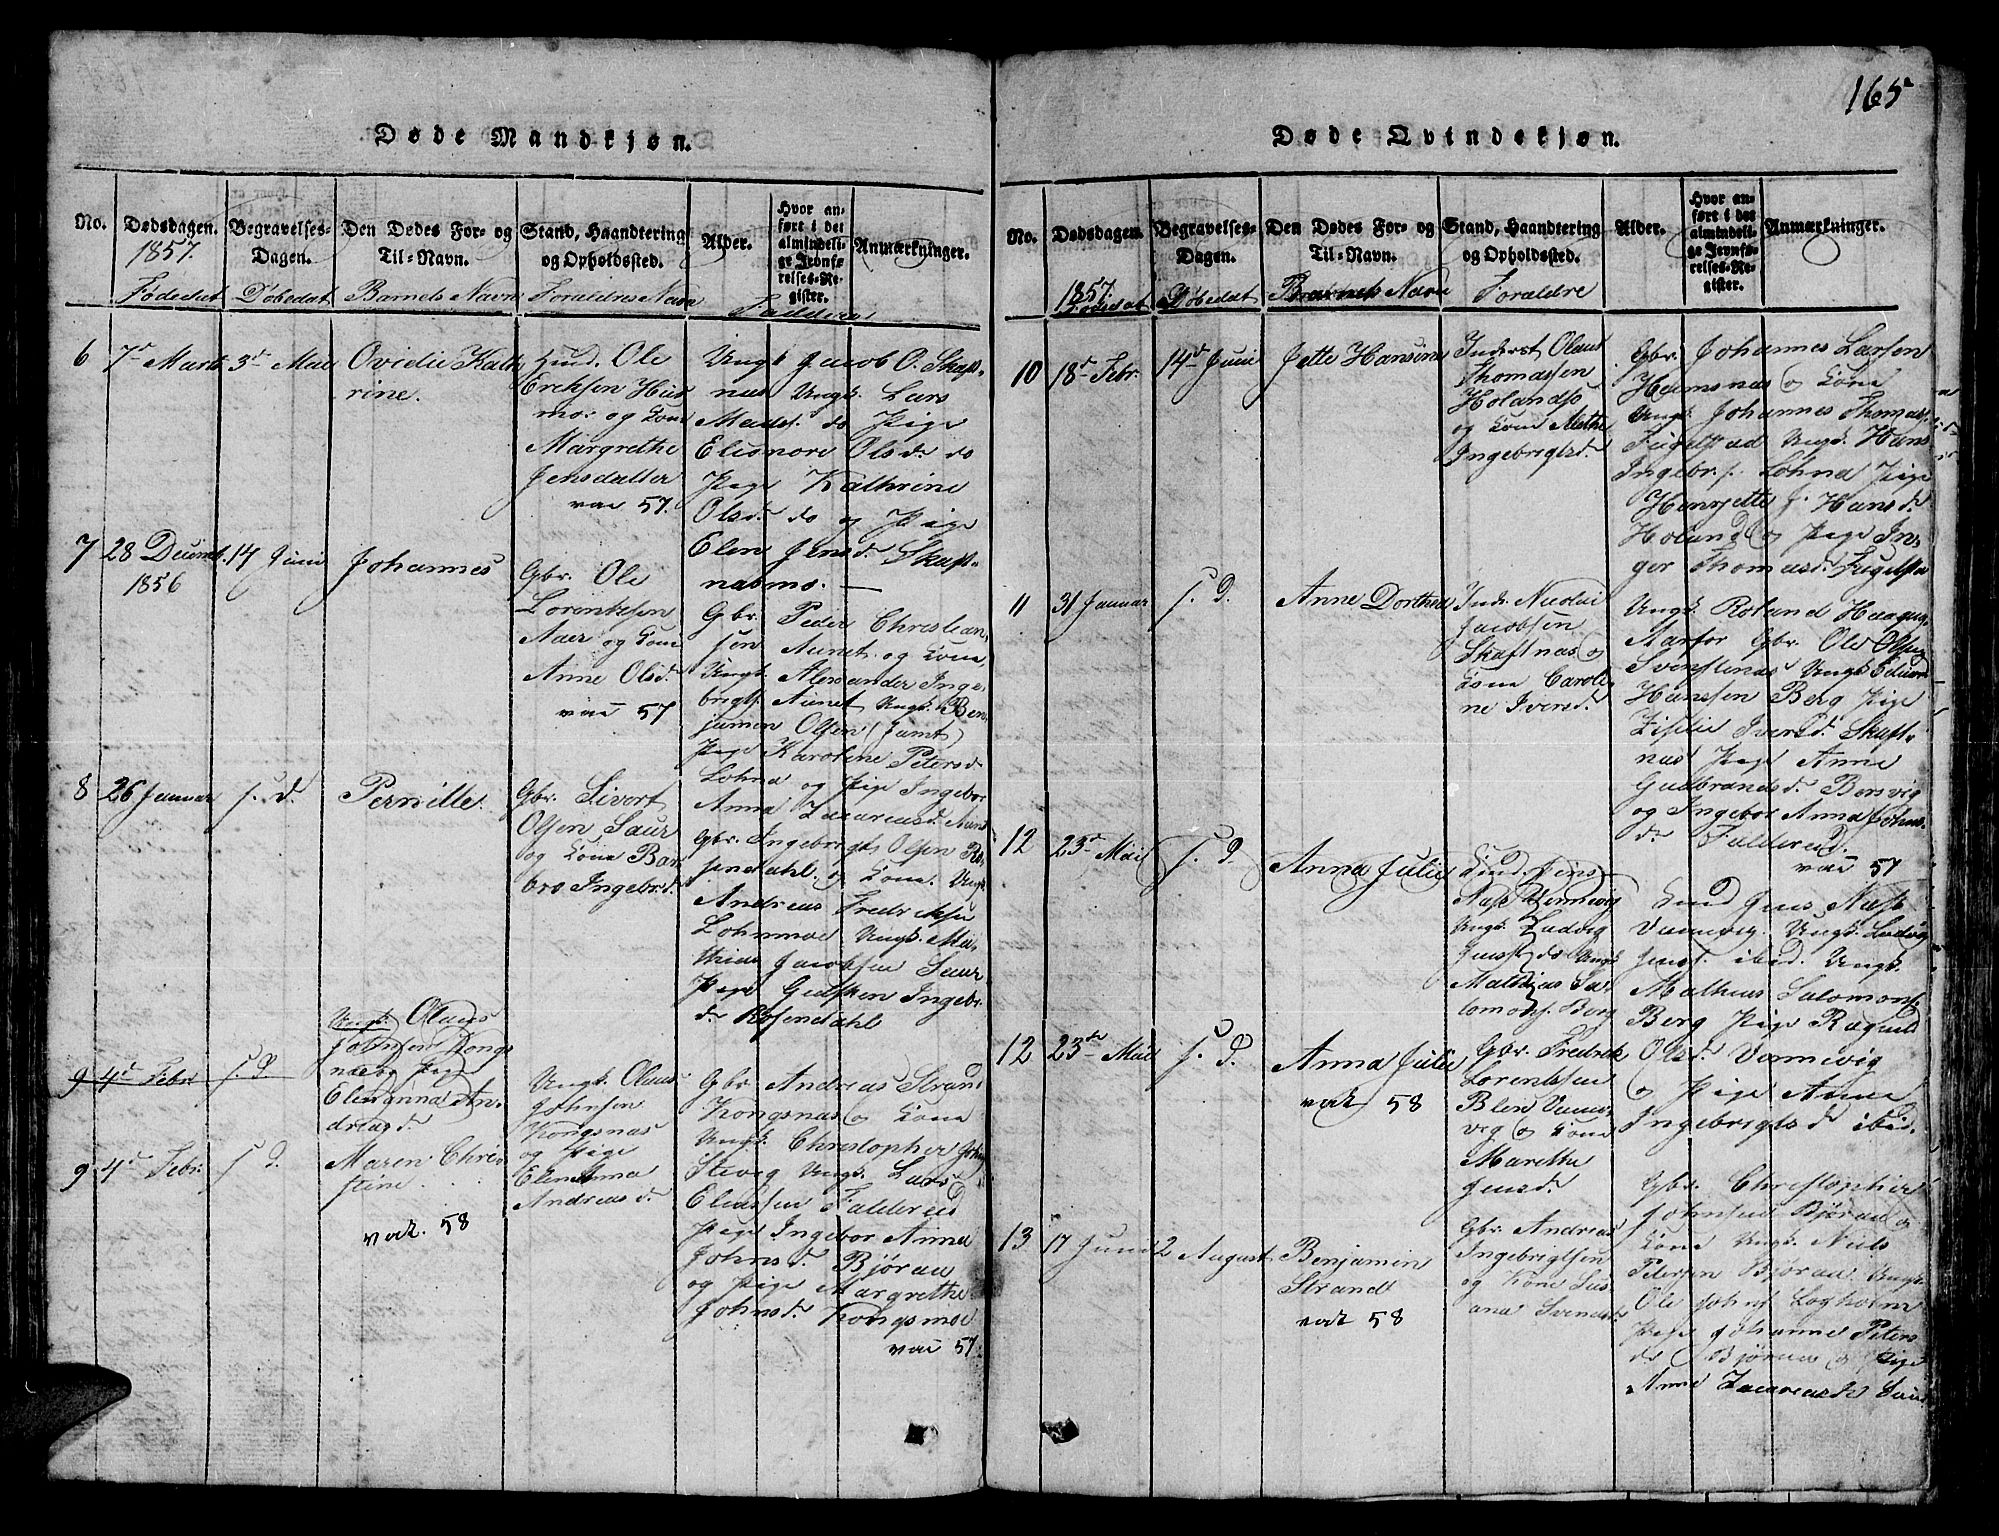 165
Døde Mandkjøn.
No.
Dødsdagen.
1857.
Fødedat
Begravelses-
Dagen.
Døbedat
Den Dødes For- og
Til-Navn.
Barnets Navn
Stand, Haandtering
og Opholdssted.
Foraldres Navn
Alder.
Hvor an-
ført i det
almindeli-
ge Jevnfø-
relses-Re-
gister.
Anmærkninger.
Faddere
6
7d Marts
3d Mai
Ovidie Kath
rine.
Huusm. Ole
Eriksen Hus
mo. og Kone
Margrethe
Jensdatter
vac 57.
Ungk Jacob O. Skaft-
nas Ungk. Lars
Mads. do Pige
Elionore Olsd. do
Pige Kathrine
Olsd. do og Pige
Elen Jensd. Skaft-
nasmo. —
7
28 Decembr.
1856
14 Juni
Johannes
Gbr. Ole
Lorentsen
Aaer og Kone
Anne Olsd.
vac 57
Gbr. Peder Christian
sen Aunet og Kone,
Ungk. Alexander Inge
brigts. Aunet Ungk. Ben
jamin Olsen (Jamt)
Pige Karoline Petersd.
Lohna og Pige Ingebor
Anna Zacariasd. Aunet
8
26 Januar
s. d.
Pernille.
Gbr. Sivort
Olsen Saur
og Kone Bar
bro Ingebrd.
Gbr. Ingebrigt Olsen Ro
sendahl. og Kone. Ungk.
Andreas Fredriksen
Lohnmoe Ungk. Ma-
thias Jacobsen Saur
Pige Gurken Ingebr.
d. Rosendahl
9 4d Febr
s. d.
Ungk. Olaus
Johnsen Kongs
nas og Pige
Elenanna An-
dreasd.
Ungk. Olaus
Johnsen
Kongsnas
og Pige
Elenanna
Andreas d.
Gbr. Andreas Strand
Kongsnas og Kone
Ungk. Christopher Johns.
Stevig Ungk. Lars
Eliassen Faldereid
Pige Ingebor Anna
Johns d. Bjørau
og Pige Margrethe
Johnsd. Kongsmoe
vac 57.
9
4d Febr.
s. d.
Maren Chris
tine.
vac. 58
Døde Qvindekjøn.
No.
Dødsdagen.
1857.
Fødedat
Begravelses-
Dagen.
Døbedat
Den Dødes For- og
Til-Navn.
Barnets Navn
Stand, Haandtering
og Opholdssted.
Foraldre
Alder.
Hvor an-
ført i det
almindeli-
ge Jevnfø-
relses-Re-
gister.
Anmærkninger.
10
18d Febr.
14d Juni
Jette Hansine
Inderst Olaus
Thomassen
Holandsø
og Kone Methe
Ingebrigtsd.
Gbr. Johannes Larsen
Heimsnas og Kone
Ungk. Johannes Thomas.
Fugelstad Ungk. Hans
Ingebr. s. Lohna Pige
Henrjette Hansd.
Holand og Pige In-
ger Thomasd. Fugelsta
11
31 Januar
s. d.
Anne Dorthea
Indr. Nicolai
Jacobsen
Skaftnas og
Kone Caroli
ne Iversd.
Ungk. Roland Haagns.
Aarfor Gbr. Ole Olsen
Svensnas Ungk. Edvin
Hanssen Berg Pige
Zisilie Iversd. Skaft-
nas Pige Anne
Gudbrandsd. Borsvig
og Ingebor Anna Johns.
d. Faldereid.
vac 57
12
23d Mai
s. d.
Anna Julie
Huusm. Jens
Næss Vennevig
Ungk. Ludvig
Jenss. do Ungk
Mathias Sa-
lomons. Berg
Huusm Jens Næss
Vannevig. Ungk. Ludvig
Jenss. ibid. Ungk.
Mathias Salomons.
Berg Pige Ragnil
Olsd. Vannevig
og Pige Anne
Ingebrigts d ibid.
12
23de Mai
s. d.
Anna Julie
vac 58
Gbr. Fredrik
Lorentssen
Blen Vanne-
vig og Kone
Marethe
Jensd.
13
17 Juni
2 August
Benjamin
Strand
vac 58
Gbr. Andreas
Ingebrigtsen
og Kone Sus
ana Svendsd.
Gbr. Christopher
Johnsen Bjørau og
Kone Ungk. Niels
Petersen Bjørau Ungk.
Ole Johns Logholm
Pige Johanne Peters
d. Bjørau og Pige
Anne Zacariasd.